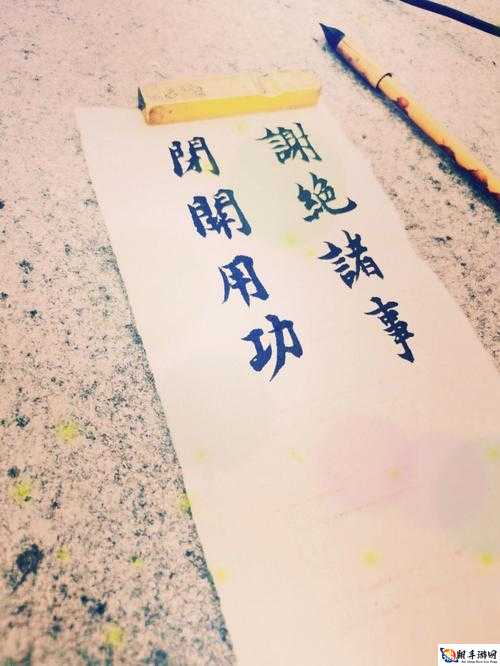 謝絶諸事
閉關用功
手游网